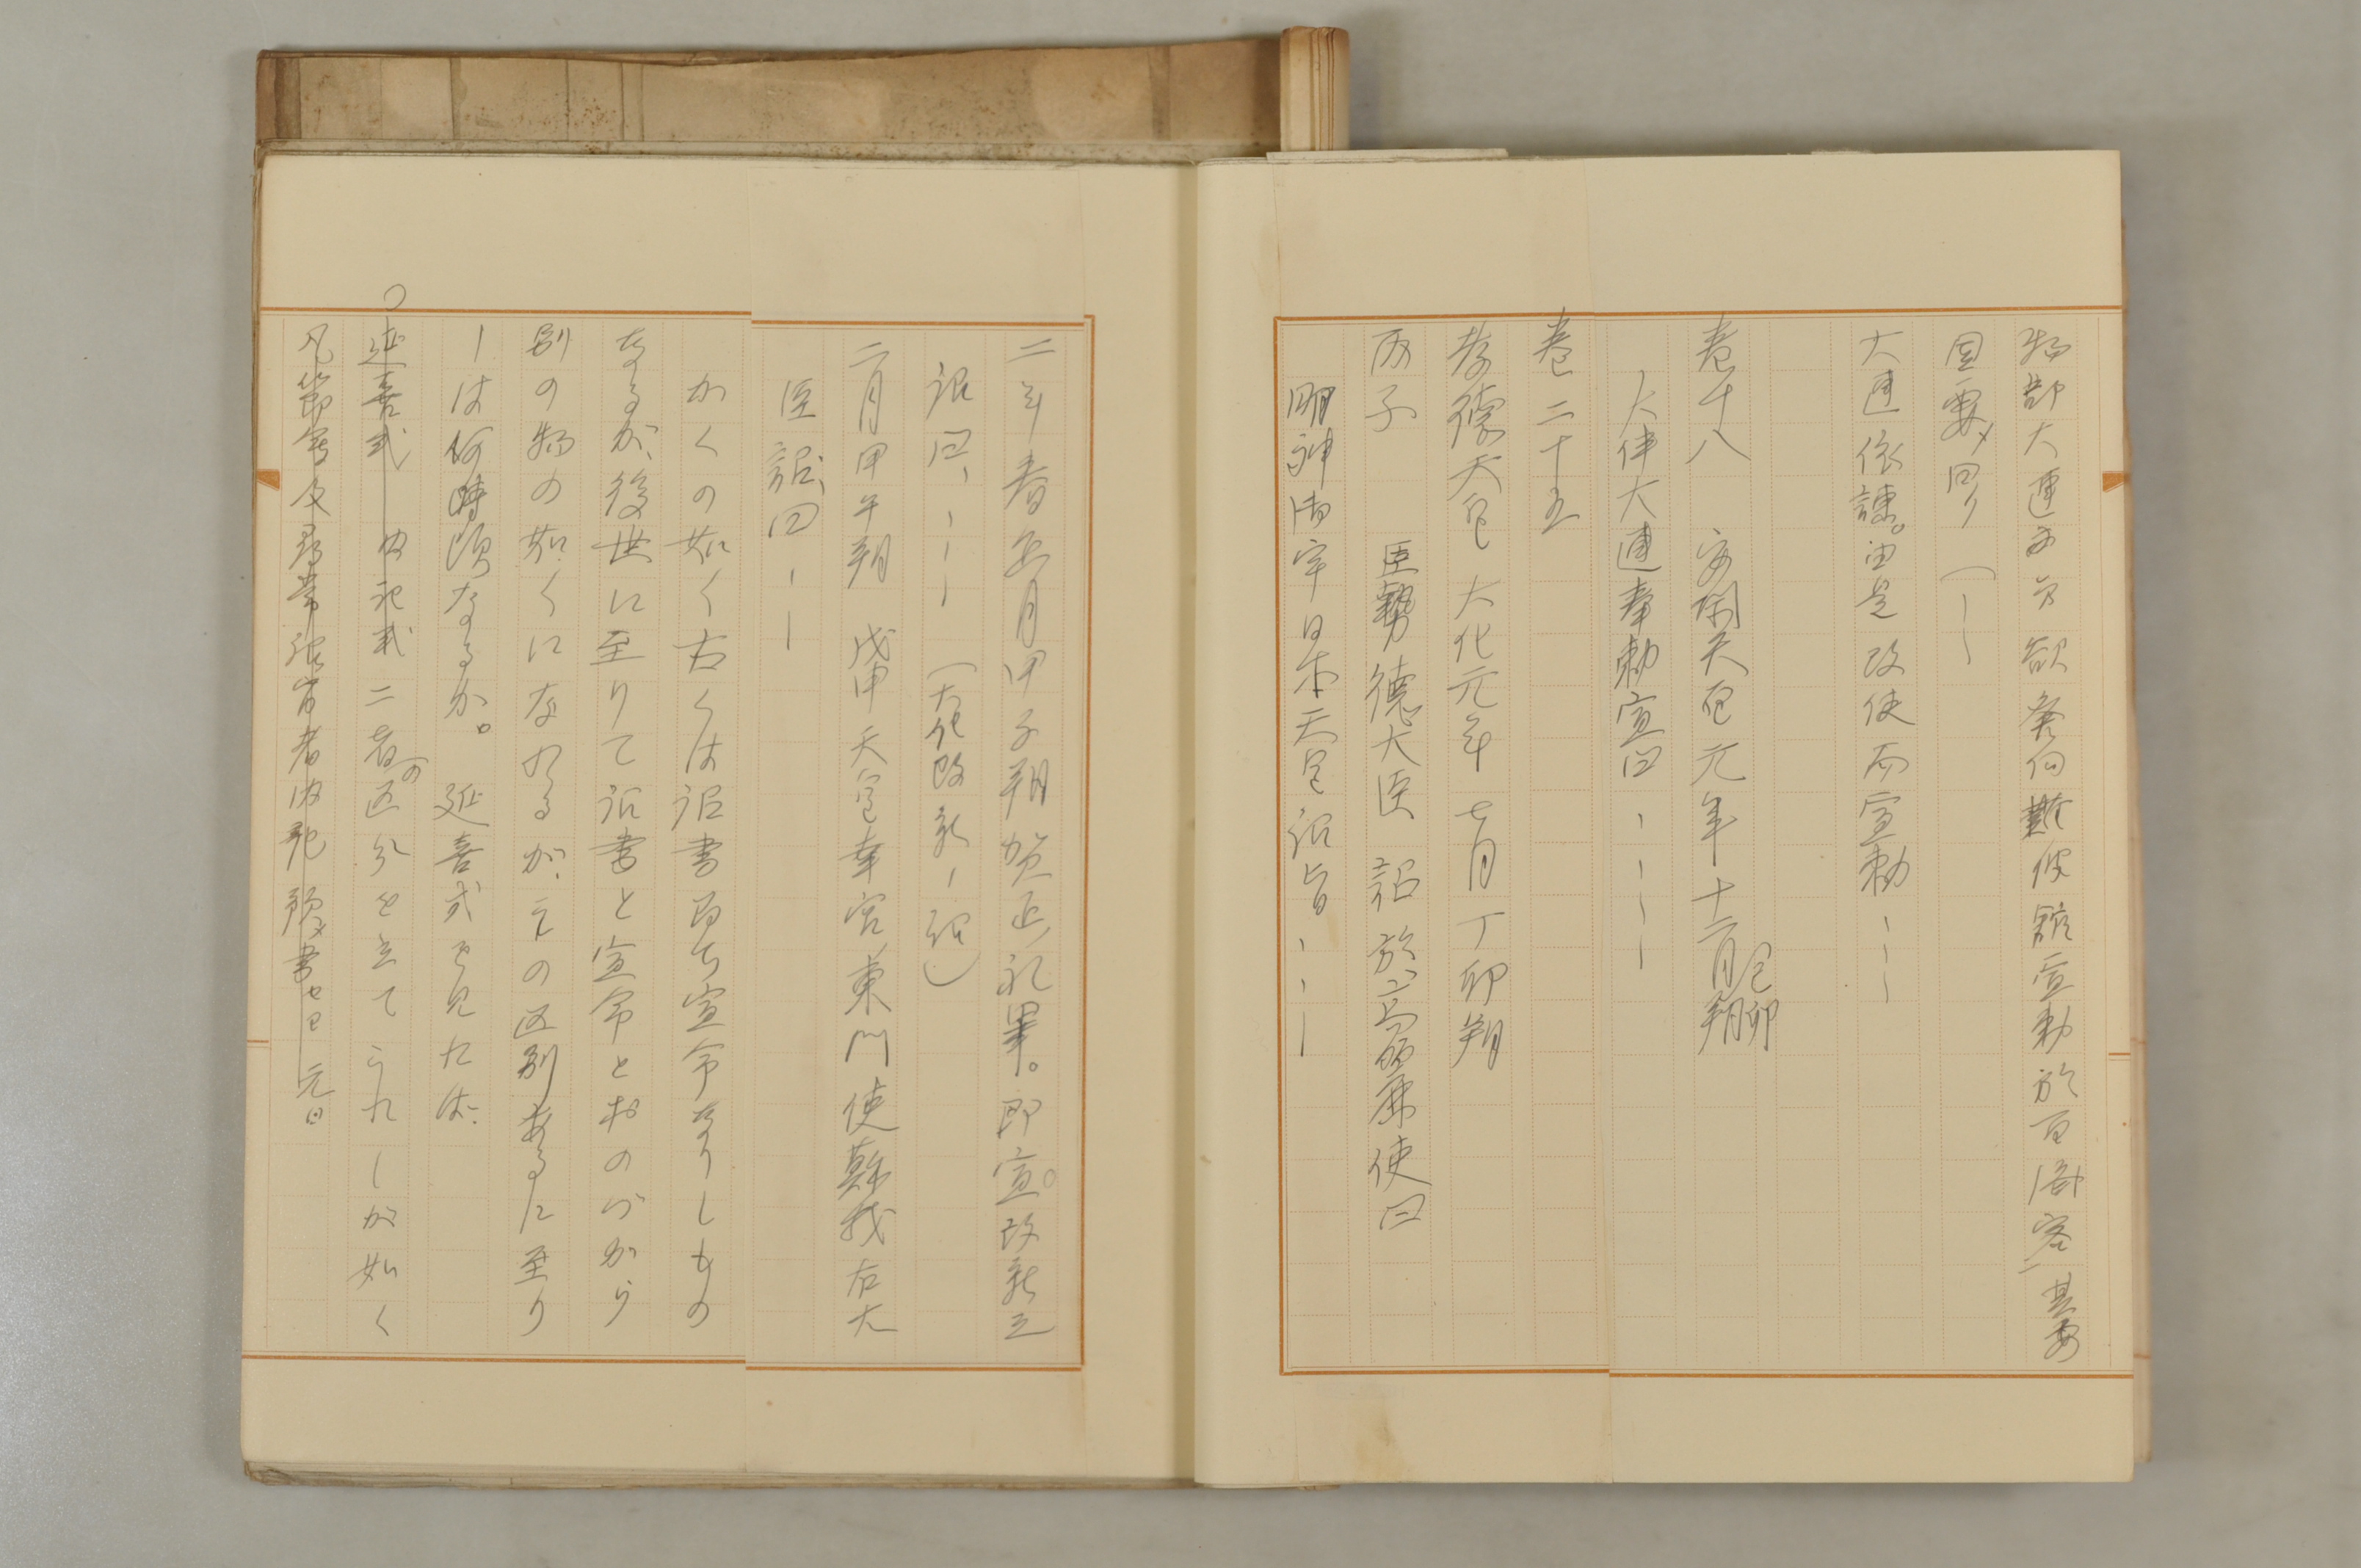 物部大連方欲発向難波館宣勅於百済客。其妻
固要曰、(ーー
大連依諫。由是改使而宣勅ーーー
巻十八　安閑天皇元年十二月己卯朔
大伴大連奉勅宣曰ーーーー
巻二十五
孝徳天皇　大化元年　七月丁卯朔
丙子　巨勢徳大臣　詔於高麗使曰
明神御宇日本天皇詔旨ーーー
二年春正月甲子朔賀正礼畢。即宣。改新之
詔曰、ーーー　(大化改新ー詔)
二月甲午朔　戊申　天皇幸宮東門使蘇我右大
臣詔、曰ーー
かくの如く古くは詔書即ち宣命なりしもの
なるが、後世に至りて詔書と宣命とおのづから
別の物の如くになれるが、その区別あるに至り
しは何時頃なるか。延喜式を見たは、
延喜式　内記式　二者の区分を立てられしが如く
凡節会及尋常詔書者内記預書セヨ　元日